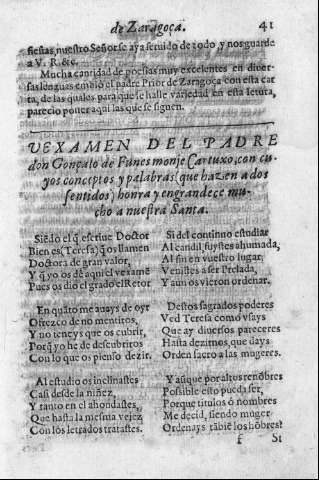 de Zaragoça. 41
fiestas, nuestro Señor se aya seruido de todo, y nos guarde
a V. R. &c.
Mucha cantidad de poesias muy excelentes en diuer-
sas lenguas embio el padre Prior de Zaragoça con esta car
ta, de las quales para que se halle variedad en esta letura,
parecio poner aqui las que se siguen.
VEXAMEN DEL PADRE
don Gonçalo de Funes monje Cartuxo, con cu-
yos conceptos y palabras (que hazen a dos
sentidos) honra y engrandece mu-
cho a nuestra Santa.
Siẽdo el q̃ escriue Doctor
Bien es (Teresa) q̃ os llamen
Doctora de gran valor,
Y q̃ yo os dè aqui el vexamẽ
Pues os dio el grado el Retor
En quãto me auays de oyr
Ofrezco de no mentiros,
Y no teneys que os cubrir,
Porq̃ yo he de descubriros
Con lo que os pienso dezir.
Al estudio os inclinastes
Casi desde la niñez,
Y tanto en el ahondastes,
Que hasta la mesma vejez
Con los letrados tratastes.
Si del continuo estudiar
Al candil fuystes ahumada,
Al fin en vuestro lugar
Venistes a ser Prelada,
Y aun os vieron ordenar.
Destos sagrados poderes
Ved Teresa como vsays
Que ay diuersos pareceres
Hasta dezirnos, que days
Orden sacro a las mugeres.
Y aũque por altos renõbres
Possible esto pueda ser,
Porque titulos ô nombres
Me decid, siendo muger
Ordenays tãbiẽ los hõbres?
f Si